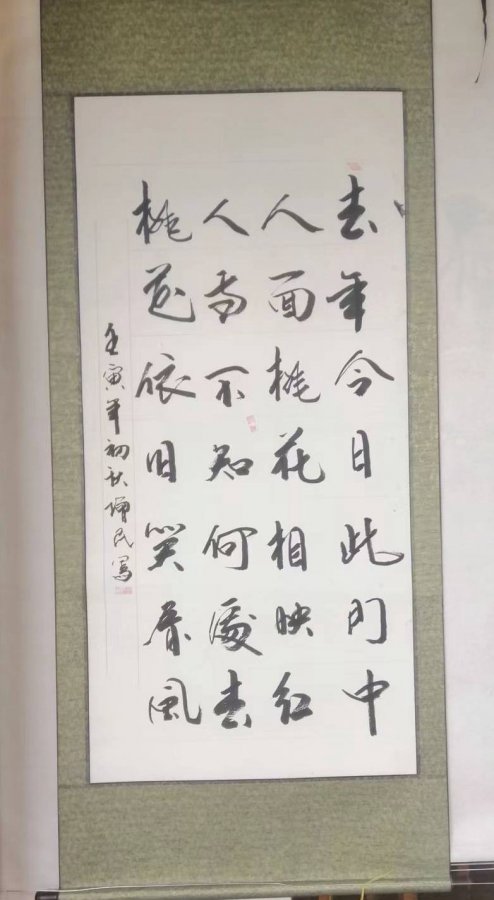 去年今日此门中
人面桃花相映红
人面不知何處去
桃花依旧笑春風
壬寅年初秋 民寫